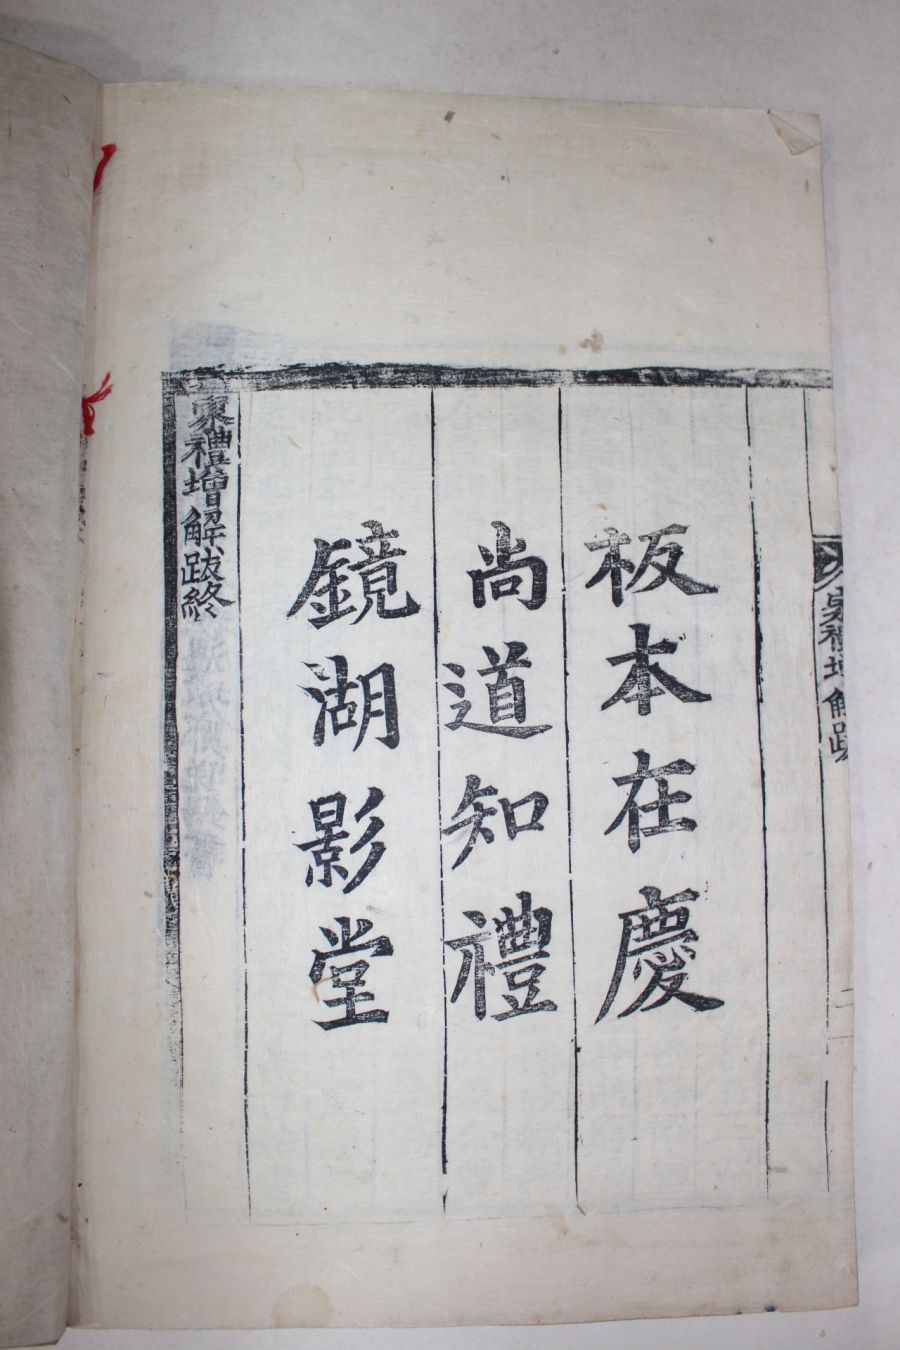 家禮增解跋
板本在慶
尚道知禮
鏡湖影堂
家禮增解跋終